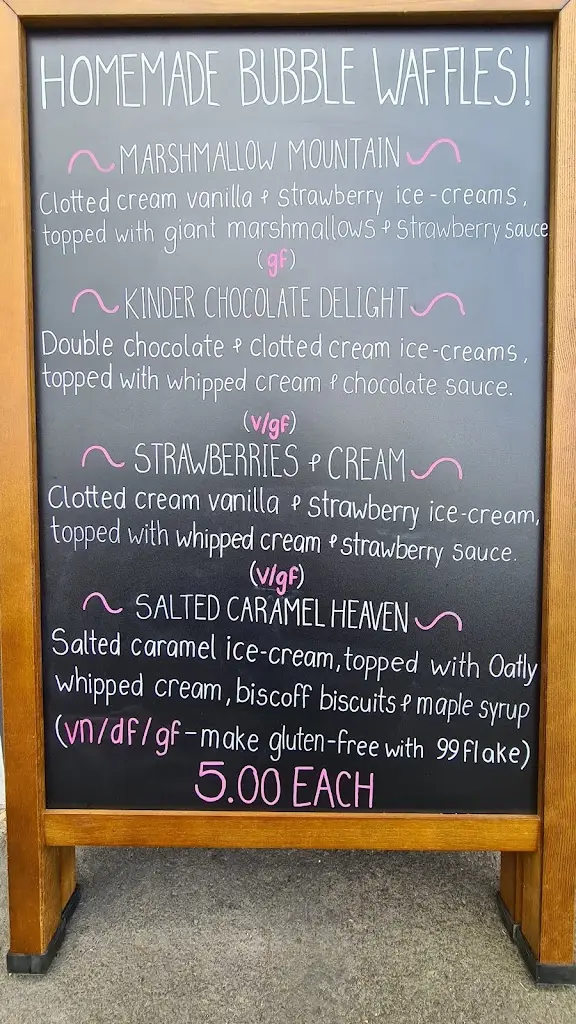 HOMEMADE BUBBLE WAFFLES!
MARSHMALLOW MOUNTAIN
Clotted cream vanilla & strawberry ice-creams,
topped with giant marshmallows & strawberry sauce
(gf)
KINDER CHOCOLATE DELIGHT
Double chocolate & clotted cream ice-creams,
topped with whipped cream & chocolate sauce.
(v/gf)
STRAWBERRIES & CREAM
Clotted cream vanilla & strawberry ice-cream,
topped with whipped cream & strawberry sauce.
(v/gf)
SALTED CARAMEL HEAVEN
Salted caramel ice-cream, topped with Oatly
whipped cream, biscoff biscuits & maple syrup
(vn/df/gf-make gluten-free with 99 flake)
5.00 EACH